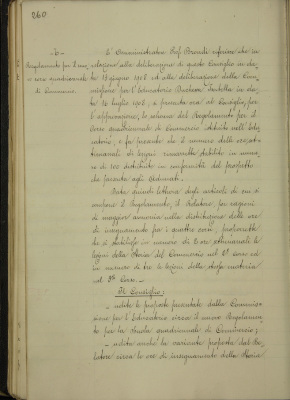 260
6
Regolamento per il nuo-
vo corso quadriennale
di Commercio.
L'Amministratore Prof. Brandi riferisce che in
relazione alla deliberazione di questo Consiglio in da-
ta 19 giugno 1908 ed alla deliberazione della Com-
missione per l'Educatorio
data 10 luglio 1908, a formato ora al Consiglio, per
l'approvazione, lo schema del Regolamento per il
Corso quadriennale di Commercio istituito nell'Edu-
catorio; e fa presente che il numero delle ore set-
timanali di lezioni rimarrebbe stabilito in nume-
ro di 100 distribuite in conformità del prospetto
che presenta agli adunati.
Data quindi lettura degli articoli di cui si
compone il Regolamento, il Relatore, per ragioni
di maggior armonia nella distribuzione delle ore
di insegnamento per i quattro corsi, proporrebbe
che si stabilisse in numero di 2 ore settimanali le
lezioni della Storia del Commercio nel 4° corso ed
in numero di tre le lezioni della stessa materia
nel 3° Corso.-
Il Consiglio;
- udite le proposte presentate dalla Commis-
sione per l'Educatorio circa il nuovo Regolamen-
to per la Scuola quadriennale di Commercio;-
- udita anche la variante proposta dal Re-
latore circa le ore di insegnamento della Storia